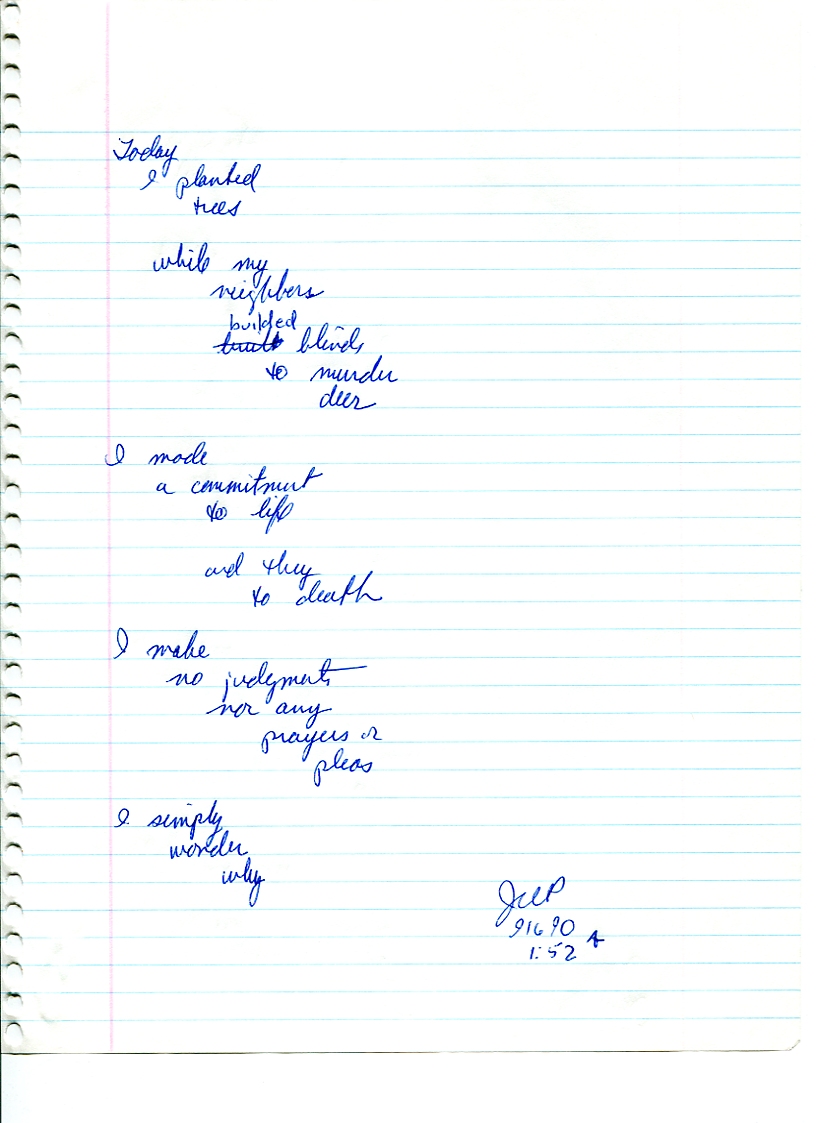 Today
I planted
trees
while my
neighbors
builded
built blinds
to murder
deer
I made
a commitment
to life
and they
to death
I make
no judgments
nor any
prayers or
pleas
I simply
wonder
why
91690
1:52 A